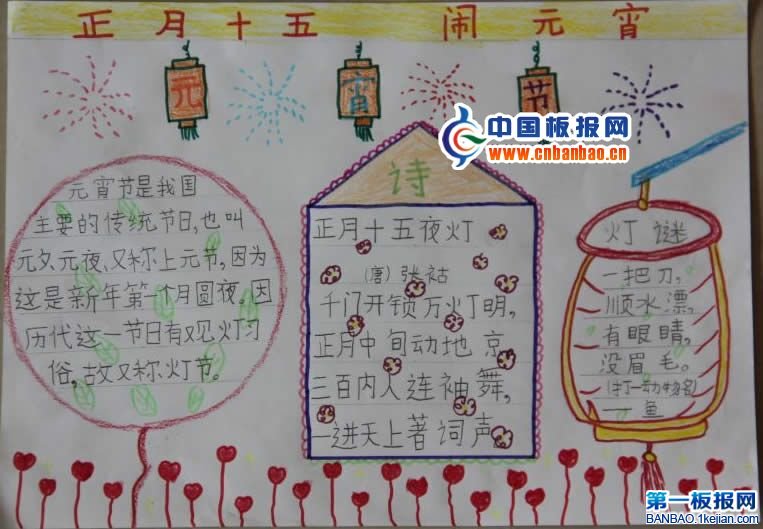 正月十五 闹元宵
元宵节
中国板报网
www.cnbanbao.cn
元宵节是我国
主要的传统节日,也叫
元夕、元夜、又称上元节,因为
这是新年第一个月圆夜。因
历代这一节日有观灯习
俗,故又称灯节。
诗
正月十五夜灯
(唐)张祜
千门开锁万灯明,
正月中旬动地京
三百内人连袖舞,
一进天上著词声
灯谜
一把刀,
顺水漂,
有眼睛,
没眉毛。
(打一动物名)
一鱼
第一板报网
BANBAO.1kejian.com